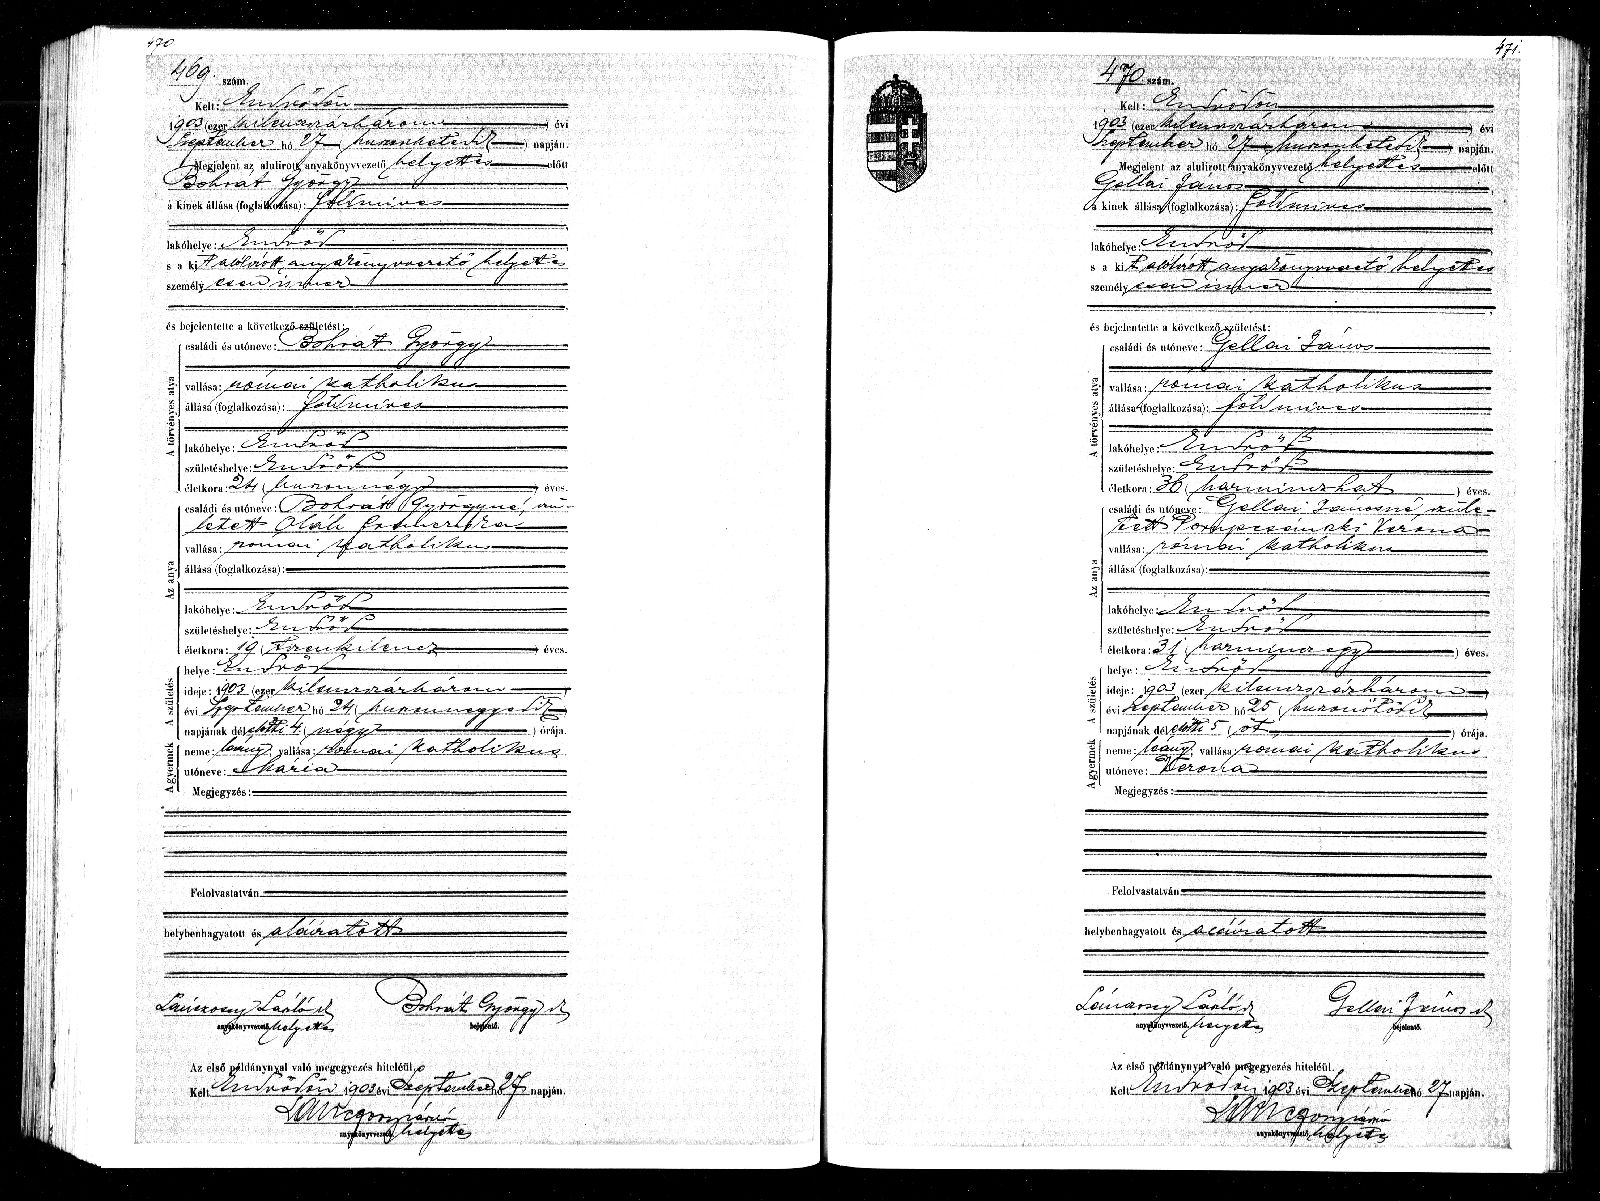 470
469. szám.
Kelt: Endrődön
1903 (ezer kilenczszázhárom ) évi
Szeptember hó 27 huszonhetedik ) napján.
Megjelent az alulirott anyakönyvvezető helyettes előtt
Bohrát György
a kinek állása (foglalkozása): földmives
lakóhelye: Endrőd
s a kit alólirott anyakönyvvezető helyettes
személyesen ismer
és bejelentette a következő születést:
A törvényes atya
családi és utóneve: Bohrát György
vallása: római katholikus
állása (foglalkozása): földmives
lakóhelye: Endrőd
születéshelye: Endrőd
életkora: 24 ( huszonnégy ) éves.
Az anya
családi és utóneve: Bohrát Györgyné, szü-
letett Oláh
vallása: római katholikus
állása (foglalkozása):
lakóhelye: Endrőd
születéshelye: Endrőd
életkora: 19 ( tizenkilencz ) éves.
A születés
helye: Endrőd
ideje: 1903 (ezer kilenczszázhárom )
évi Szeptember hó 24 ( huszonnegyedik )
napjának délelőtti 4 ( négy ) órája.
A gyermek
neme: leány; vallása: római katholikus
utóneve: Mária
Megjegyzés:
Felolvastatván
helybenhagyatott és aláiratott
László s.k. Bohrát György s.k.
anyakönyvvezető. helyettes bejelentő.
Az első példánynyal való megegyezés hiteléül.
Kelt Endrődön 1903 évi Szeptember hó 27 napján.
anyakönyvvezető. helyettes
471.
470 szám.
Kelt: Endrődön
1903 (ezer kilenczszázhárom ) évi
Szeptember hó 27 huszonhetedik ) napján.
Megjelent az alulirott anyakönyvvezető helyettes előtt
Gellai János
a kinek állása (foglalkozása): földmives
lakóhelye: Endrőd
s a kit alólirott anyakönyvvezető helyettes
személyesen ismer
és bejelentette a következő születést:
A törvényes atya
családi és utóneve: Gellai János
vallása: római katholikus
állása (foglalkozása): földmives
lakóhelye: Endrőd
születéshelye: Endrőd
életkora: 36 ( harminczhat ) éves.
Az anya
családi és utóneve: Gellai Jánosné, szüle-
tett Verona
vallása: római katholikus
állása (foglalkozása):
lakóhelye: Endrőd
születéshelye: Endrőd
életkora: 31 ( harminczegy ) éves.
A születés
helye: Endrőd
ideje: 1903 (ezer kilenczszázhárom )
évi Szeptember hó 25 ( huszonötödik )
napjának délelőtti 5 ( öt ) órája.
A gyermek
neme: leány; vallása: római katholikus
utóneve: Verona
Megjegyzés:
Felolvastatván
helybenhagyatott és aláiratott
László s.k. Gellai János s.k.
anyakönyvvezető. helyettes bejelentő.
Az első példánynyal való megegyezés hiteléül.
Kelt Endrődön 1903 évi Szeptember hó 27 napján.
anyakönyvvezető. helyettes